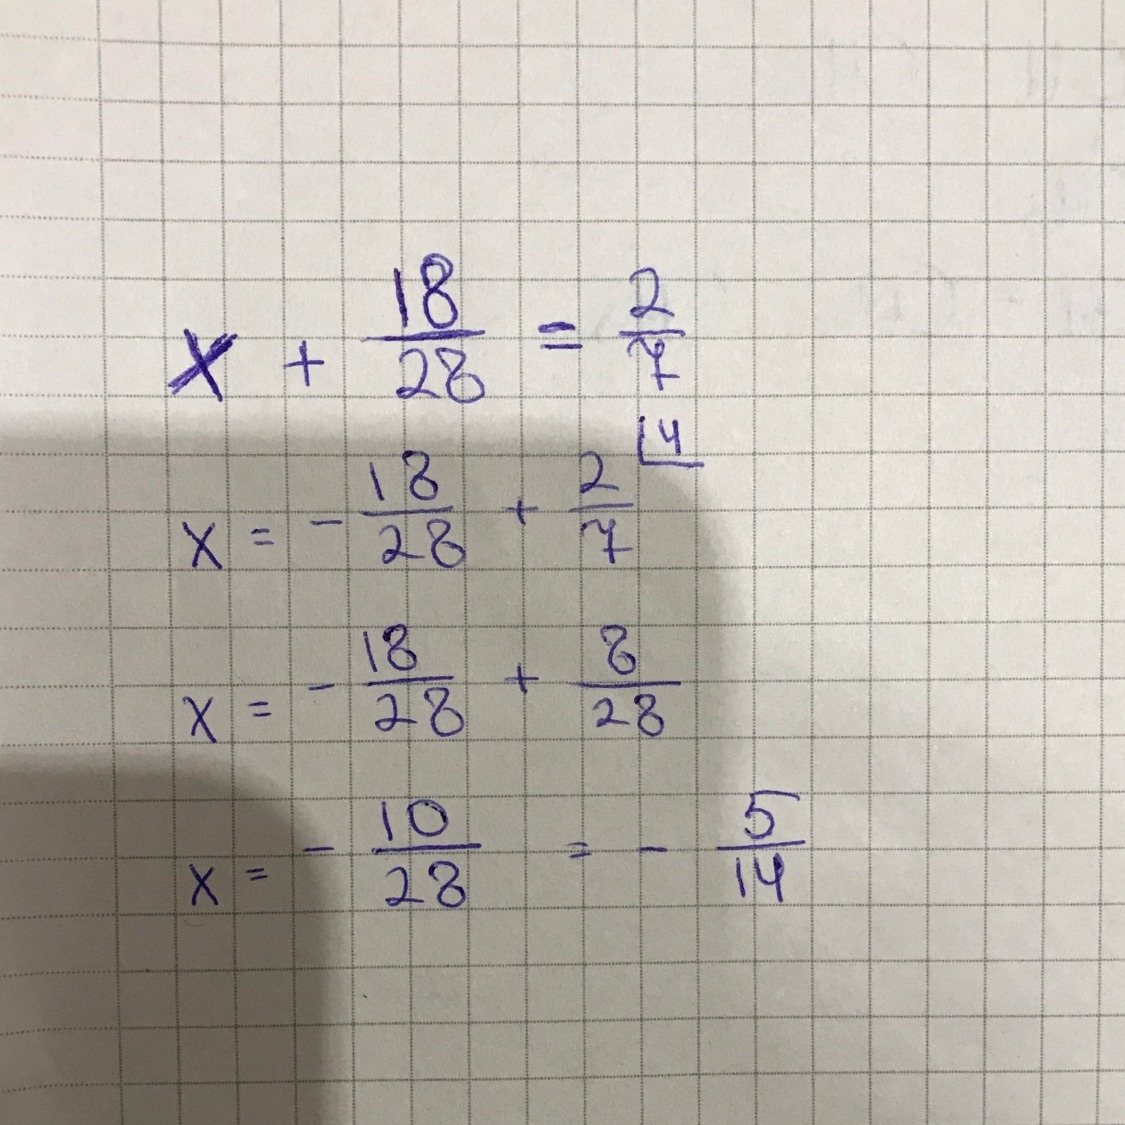 x + 18/28 = 2/7
4
x = - 18/28 + 2/7
x = - 18/28 + 8/28
x = - 10/28 = - 5/14